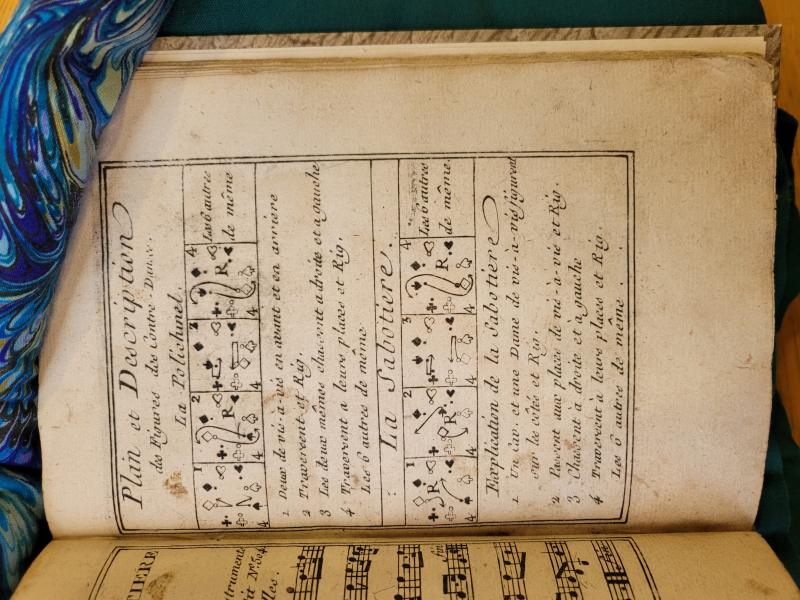 Plain et Description
des Figures des Contre Dance.
La Polichinel.
1 2 3 4
R R
4 4 4 4
Les 6 autres
de même
1 Deux de vis-à-vis en avant et en arriere
2 Traversent et Rig.
3 Les deux mêmes chassent a droite et a gauche
4 Traversent a leurs places et Rig.
Les 6 autres de même
La Sabotiere.
1 2 3 4
R R R
4 4 4 4
Les 6 autres
de même.
Explication de la Sabotiere
1 Un Cav. et une Dame de vis-a-vis figurent
sur les côtés et Rig.
2 Passent aux places de vis-a-vis et Rig.
3 Chassent à droite et à gauche
4 Traversent a leurs places et Rig.
Les 6 autres de même.
TIERE